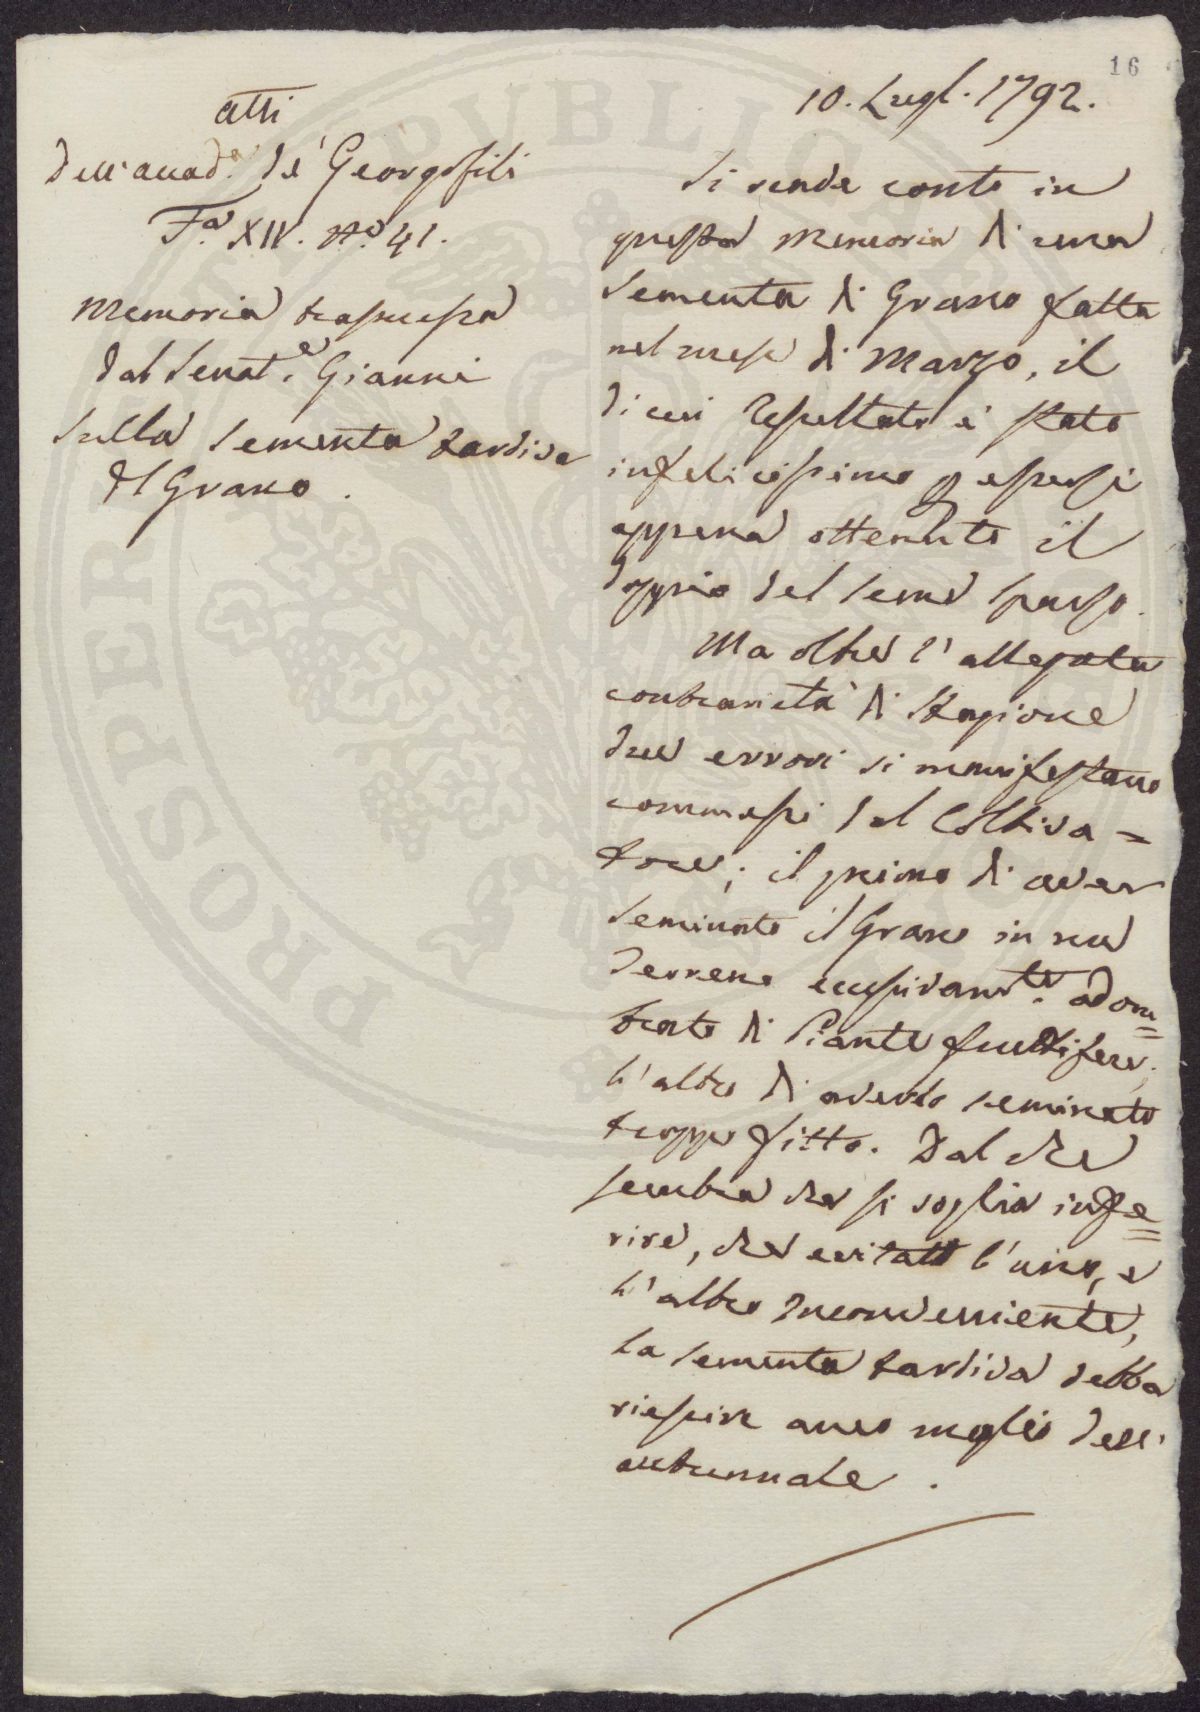 16
Atti
dell'accad.ª de' Georgofili
F.ª XIV. N.º 41.
Memoria trasmessa
dal Senat.e Gianni
sulla sementa tardiva
del Grano.
10. Lugl. 1792.
Si rende conto in
questa memoria di una
sementa di Grano fatta
nel mese di Marzo, il
di cui resultato è stato
infelicissimo p essersi
appena ottenuto il
doppio del seme sparso.
Ma oltre l'allegata
contrarietà di stagione
due errori si manifestano
commessi dal Coltiva=
tore; il primo di aver
seminato il Grano in un
terreno eccessivam.te adom=
brato di Piante fruttifere;
l'altro di averlo seminato
troppo fitto. Dal che
sembra che si voglia infe=
rire, che evitato l'uno, e
l'altro inconveniente,
la sementa tardiva debba
riescire anco meglio dell'
autunnale.
PUBLIC
PROSPERI